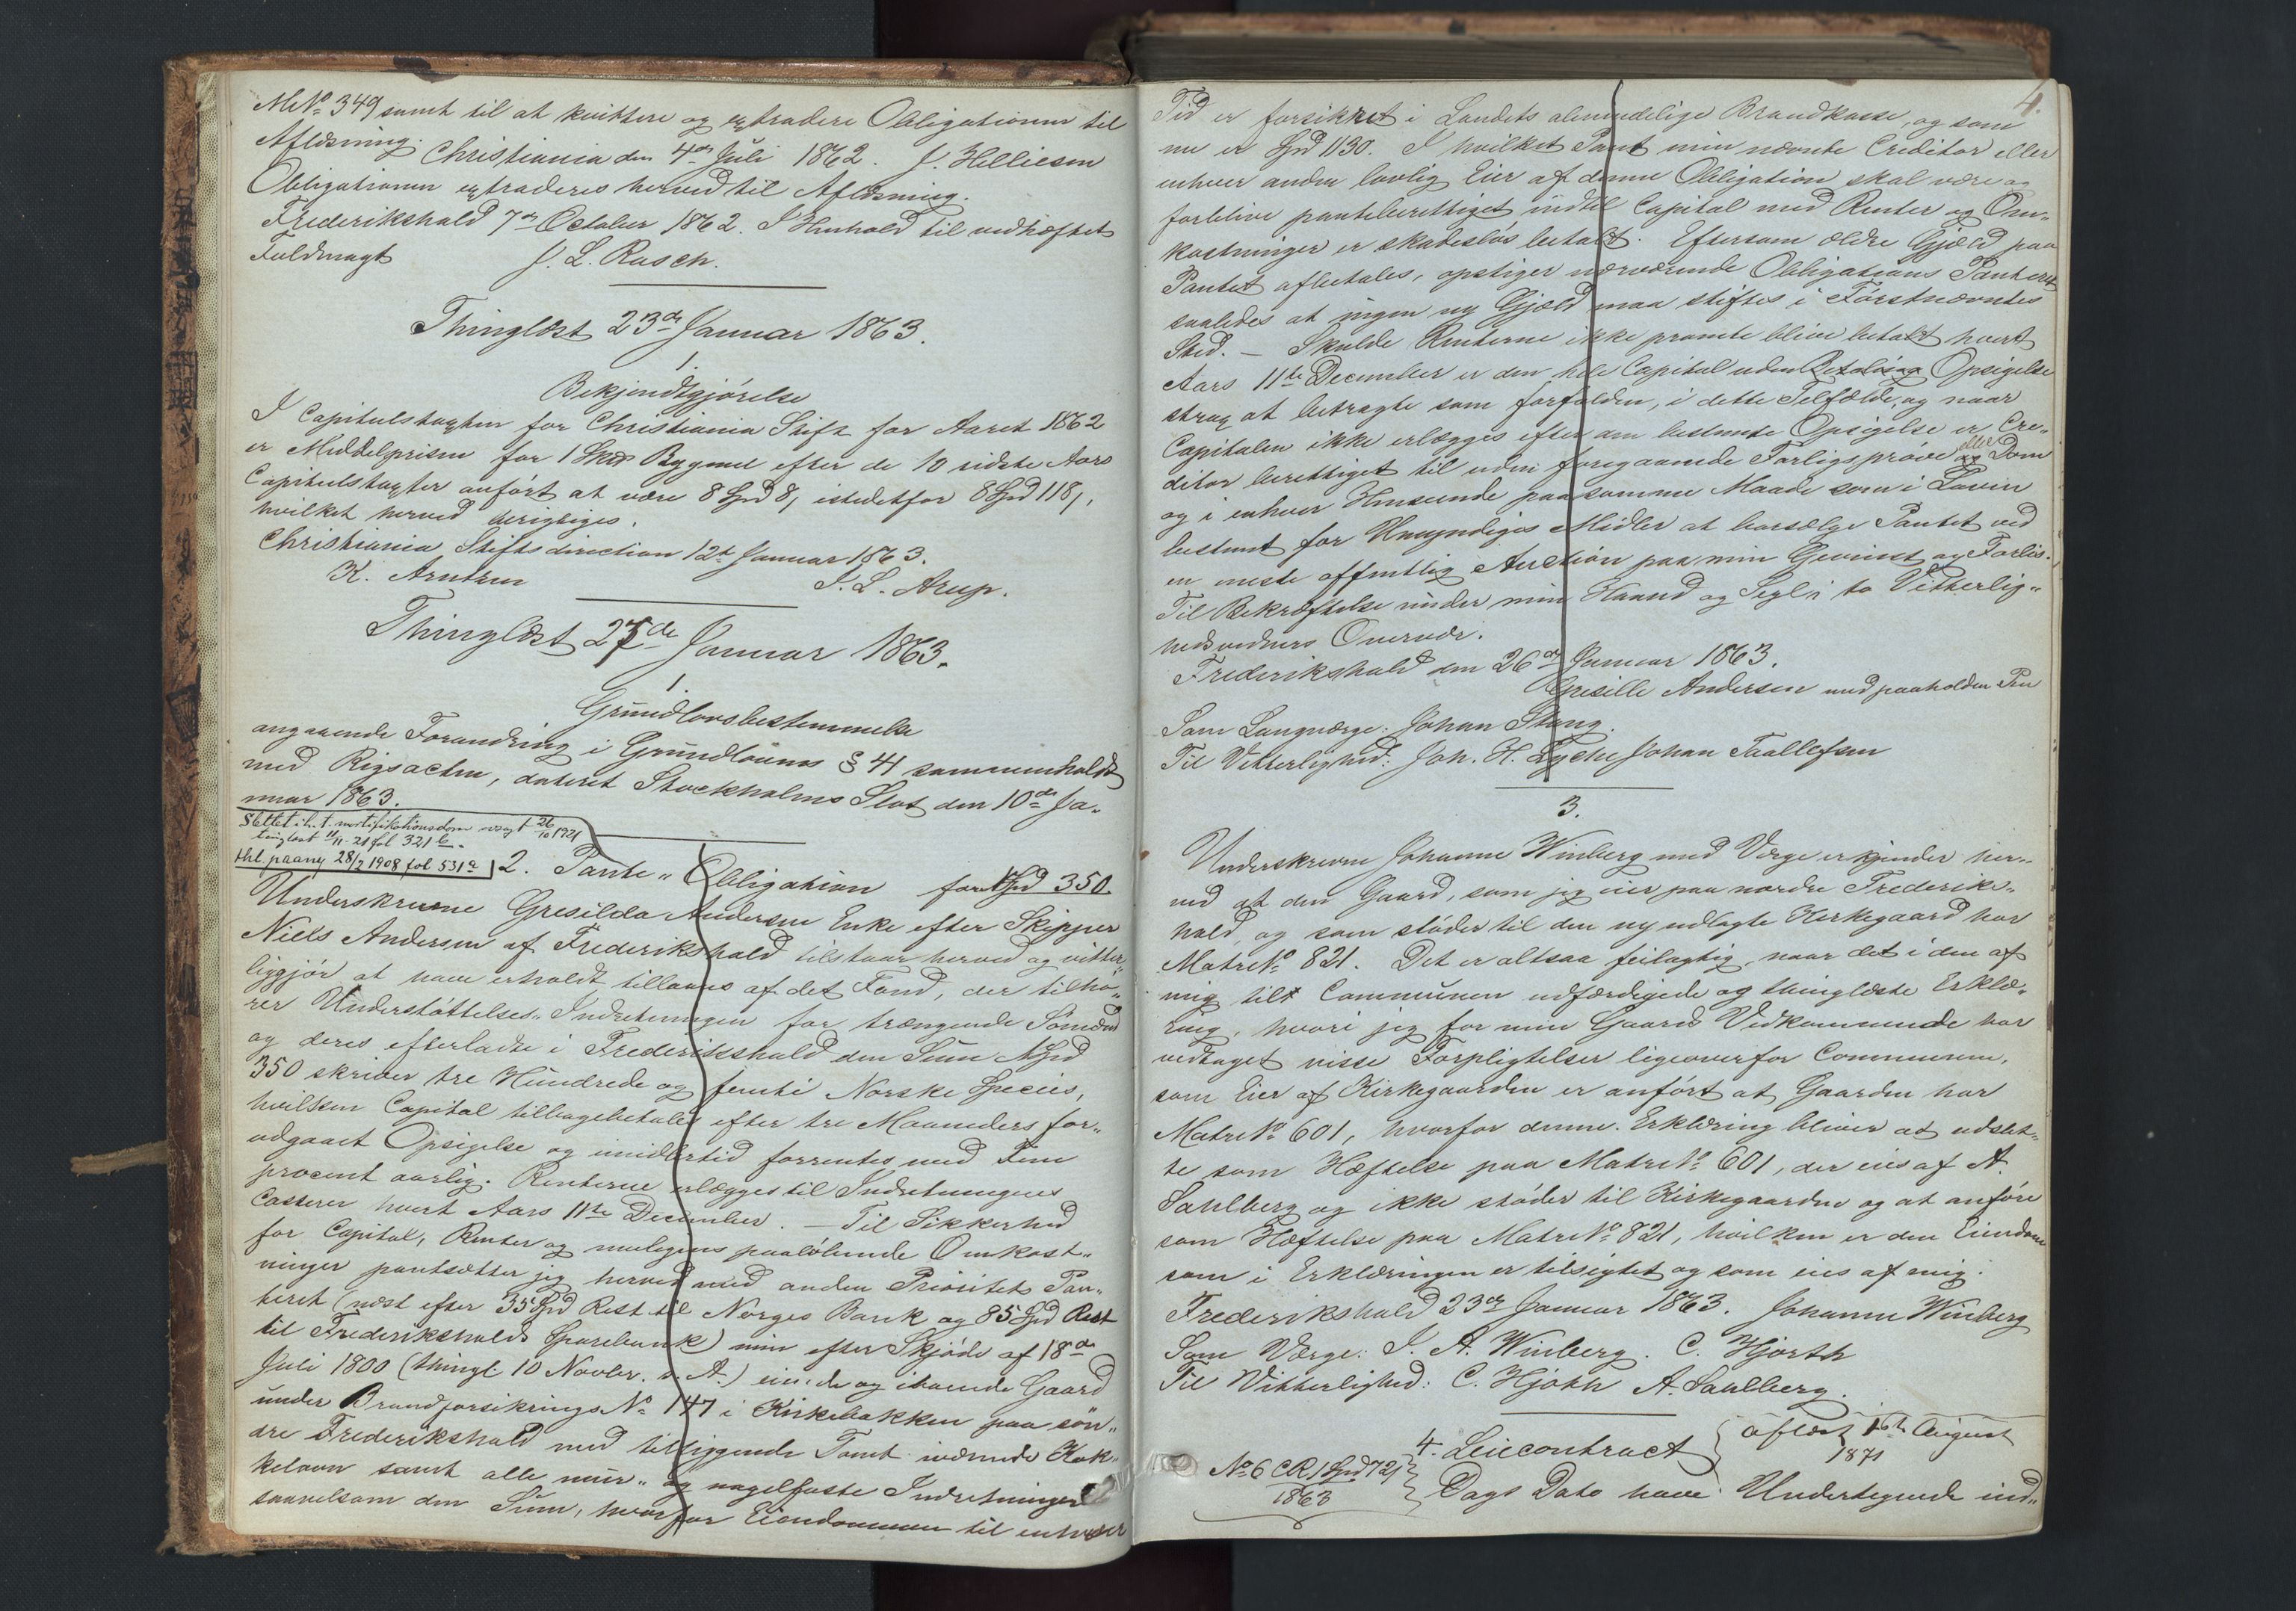 MNo 349 samt til at kvittere og extradere Obligationen til
Aflæsning. Christiania den 4de Juli 1862. J. Helliesen
Obligationen extraderes herved til Aflæsning.
Frederikshald 7de October 1862. I Henhold til vedhæftet
Fuldmagt J. L. Rasch.
Thinglæst 23de Januar 1863.
1.
Bekjendtgjörelse
I Capitulstaxten for Christiania Stift for Aaret 1862
er Middelprisen for 1 Byg efter de 10 sidste Aars
Capitulstaxter anfört at være 8 Spd 8, istedetfor 8 Spd 118,
hvilket herved berigtiges.
Christiania Stiftsdirection 12te Januar 1863.
K. Arntzen J. L. Arup.
Thinglæst 27de Januar 1863.
1.
Grundlovsbestemmelse
angaaende Forandring i Grundlovens § 41 sammenholdt
med Rigsacten, dateret Stockholms Slot den 10de Ja-
nuar 1863.
Slettet i h. t. mortifikationsdom avsagt 26/10 1921
tinglæst 11/11-21 fol 321 b.
thl. paany 28/2 1908 fol 531a
2. Pante-Obligation for NSpd 350.
Underskrevne Gresilda Andersen Enke efter Skipper
Niels Andersen af Frederikshald tilstaar herved og vitter-
liggjör at have erholdt tillaans af det Fond, der tilhö-
rer Understöttelses-Indretningen for trængende Sömænd
og deres efterladte i Frederikshald den Sum NSpd
350 skriver tre Hundrede og femti Norske Species,
hvilken Capital tilbagebetales efter tre Maaneders for-
udgaaet Opsigelse og imidlertid forrentes med Fem
procent aarlig. Renterne erlægges til Indretningens
Casserer hvert Aars 11te December. — Til Sikkerhed
for Capital, Renter og muligens paalöbende Omkost-
ninger pantsætter jeg herved med anden Prioritets Pan-
teret (næst efter 35 Spd Rest til Norges Bank og 85 Spd Rest
til Frederikshalds Sparebank) min efter Skjöde af 18de
Juli 1800 (thingl. 10 Novbr. s. A.) eiende og iboende Gaard
under Brandforsikrings No 147 i Kirkebakken paa sön-
dre Frederikshald med tilliggende Tomt iværende Kak-
kelovn samt alle mur- og nagelfaste Indretninger
saavelsom den Sum, hvorfor Eiendommen til enhver
4.
Tid er forsikret i Landets almindelige Brandkasse, og som
nu er Spd 1130. I hvilket Pant min nævnte Creditor eller
enhver anden lovlig Eier af denne Obligation skal være og
forblive panteberettiget indtil Capital med Renter og Om-
kostninger er skadeslös betalt. Eftersom ældre Gjæld paa
Pantet afbetales, opstiger nærværende Obligations Panteret
saaledes at ingen ny Gjæld maa stiftes i Förstnævntes
Sted. — Skulde Renterne ikke promte blive betalt hvert
Aars 11te December er den hele Capital uden Betaling Opsigelse
strax at betragte som forfalden, i dette Tilfælde, og naar
Capitalen ikke erlægges efter den bestemte Opsigelse er Cre-
ditor berettiget til uden foregaaende Forligspröve eller Dom
og i enhver Henseende paa samme Maade som i Loven
bestemt for Umyndiges Midler at bortsælge Pantet ved
en meste offentlig Auction paa min Gevinst og Forlis.
Til Bekræftelse under min Haand og Segl i to Vitterlig-
hedsvidners Overvær.
Frederikshald den 26de Januar 1863.
Gresille Andersen med paaholden Pen
Som Laugværge: Johan Stang.
Til Vitterlighed: Joh. H. Lyche Johan Taallefsen
3.
Underskrevne Johanne Winberg med Værge erkjender her-
ved at den Gaard, som jeg eier paa nordre Frederiks-
hald, og som stöder til den ny udlagte Kirkegaard har
Matre No 821. Det er altsaa feilagtig, naar det i den af
mig til Communen udfærdigede og thinglæste Erklæ-
ring, hvori jeg for min Gaards Vedkommende har
vedtaget visse Forpligtelser ligeoverfor Communen,
som Eier af Kirkegaarden er anfört at Gaarden har
Matre No 601, hvorfor denne Erklæring bliver at udslet-
te som Hæftelse paa Matre No 601, der eies af A.
Sahlberg og ikke stöder til Kirkegaarden og at anföre
som Hæftelse paa Matre No 821, hvilken er den Eiendom
som i Erklæringen er tilsigtet og som eies af mig.
Frederikshald 23de Januar 1863. Johanne Winberg
Som Værge: J. A. Winberg. C. Hjorth
Til Vitterlighed: C. Hjorth A. Sahlberg.
4. Leiecontract aflæst 16de August
1871
No 6 CR 1 Spd 72
1863
Dags Dato have Undertegnede ind-